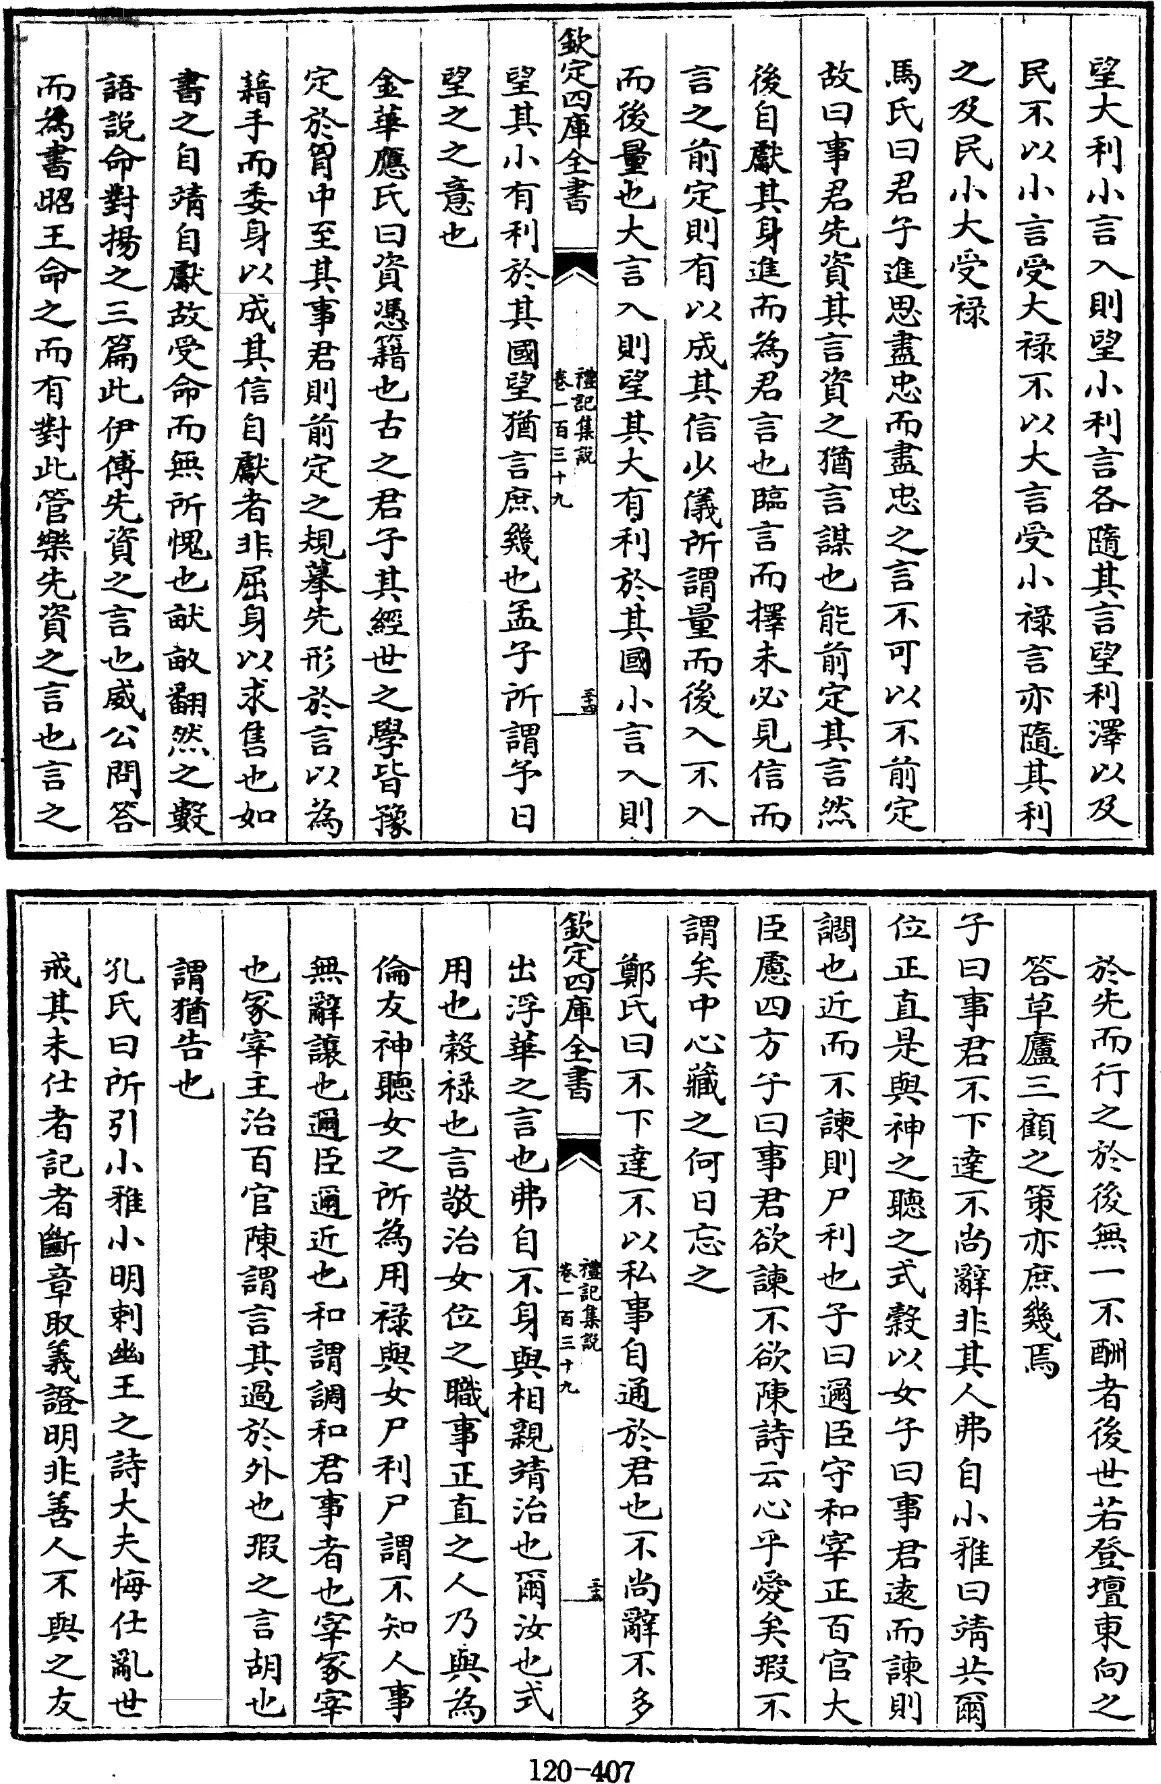 望大利小言入則望小利言各隨其言望利澤以及
民不以小言受大禄不以大言受小禄言亦隨其利
之及民小大受禄
馬氏曰君子進思盡忠而盡忠之言不可以不前定
故曰事君先資其言資之猶言謀也能前定其言然
後自獻其身進而為君言也臨言而擇未必見信而
言之前定則有以成其信少儀所謂量而後入不入
而後量也大言入則望其大有利於其國小言入則
欽定四庫全書
禮記集説
卷一百三十九
三十四
望其小有利於其國望猶言庶幾也孟子所謂予日
望之之意也
金華應氏曰資憑籍也古之君子其經世之學皆豫
定於胷中至其事君則前定之規摹先形於言以為
藉手而委身以成其信自獻者非屈身以求售也如
書之自靖自獻故受命而無所愧也畎畝翻然之數
語説命對揚之三篇此伊傅先資之言也威公問答
而為書昭王命之而有對此管樂先資之言也言之
於先而行之於後無一不酬者後世若登壇東向之
答草廬三顧之策亦庶幾焉
子曰事君不下達不尚辭非其人弗自小雅曰靖共爾
位正直是與神之聽之式穀以女子曰事君逺而諫則
讇也近而不諫則尸利也子曰邇臣守和宰正百官大
臣慮四方子曰事君欲諫不欲陳詩云心乎愛矣瑕不
謂矣中心藏之何日忘之
鄭氏曰不下達不以私事自通於君也不尚辭不多
欽定四庫全書
禮記集説
卷一百三十九
三十五
出浮華之言也弗自不身與相親靖治也爾汝也式
用也穀禄也言敬治女位之職事正直之人乃與為
倫友神聽女之所為用禄與女尸利尸謂不知人事
無辭讓也邇臣邇近也和謂調和君事者也宰冢宰
也冢宰主治百官陳謂言其過於外也瑕之言胡也
謂猶告也
孔氏曰所引小雅小明刺幽王之詩大夫悔仕亂世
戒其未仕者記者斷章取義證明非善人不與之友
120-407